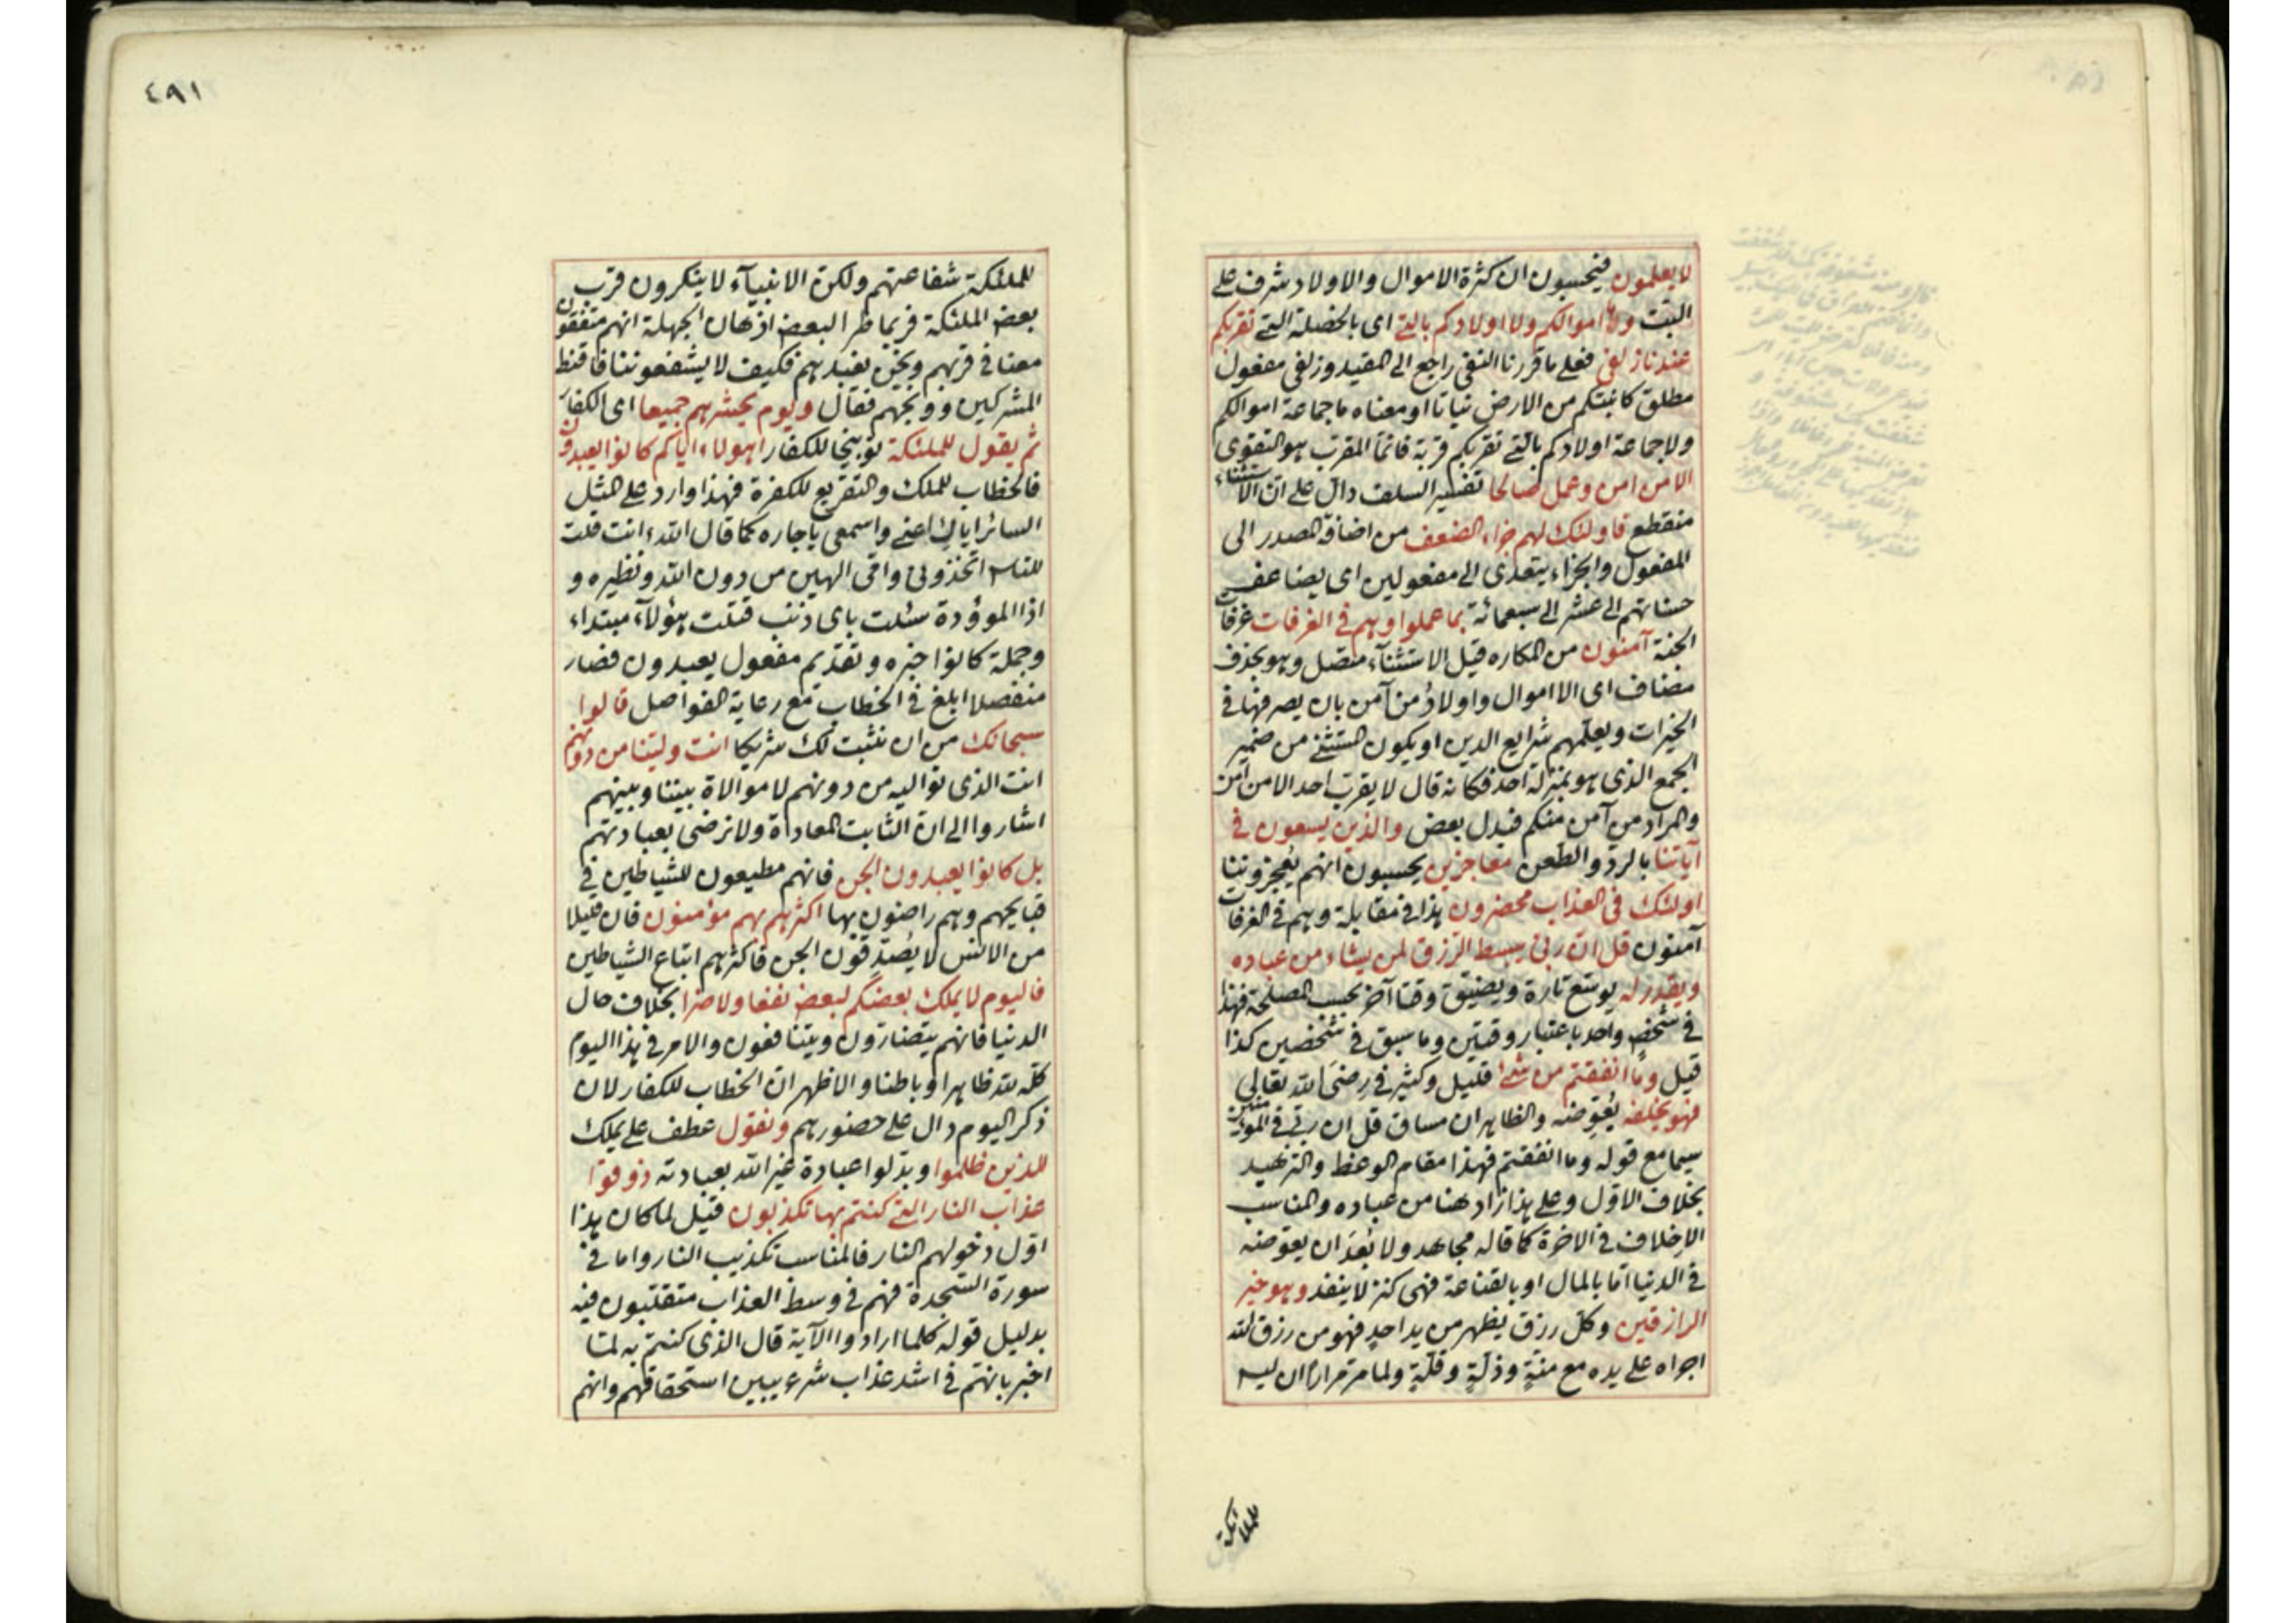 لا يعلمون فيحسبون ان كثرة الاموال والاولاد شرف على
البتت وما اموالكم ولا اولادكم بالتي اى بالخصلة التي تقربكم
عندنا زلفى فعلى ما قررنا النفى راجع الى المقيد وزلفى مفعول
مطلق كانبتكم من الارض نباتا او معناه ما جماعة اموالكم
ولا جماعة اولادكم بالتي تقربكم قربة فانما المقرب هو التقوى
الا من امن وعمل صالحا تفسير السلف دال على ان الاستثناء
منقطع فاولئك لهم جزاء الضعف من اضافة المصدر الى
المفعول والجزاء يتعدى الى مفعولين اى يضاعف
حسناتهم الى عشر الى سبعمائة بما عملوا وهم فى الغرفات غرفات
الجنة آمنون من المكاره قيل الاستثناء متصل وهو بحذف
مضاف اى الا اموال واولاد من آمن بان يصرفها فى
الخيرات ويعلمهم شرايع الدين او يكون المستثنى من ضمير
الجمع الذى هو بمنزلة احد فكانه قال لا يقرب احد الا من آمن
والمراد من آمن منكم فبدل بعض والذين يسعون فى
آياتنا بالرد والطعن معاجزين يحسبون انهم يعجزوننا
اولئك فى العذاب محضرون هذا فى مقابلة وهم فى الغرفات
آمنون قل ان ربى يبسط الرزق لمن يشاء من عباده
ويقدر له يوسّع تارة ويضيق وقتا آخر بحسب المصلحة فهذا
فى شخص واحد باعتبار وقتين وما سبق فى شخصين كذا
قيل وما انفقتم من شئ قليل وكثير فى رضى الله تعالى
فهو يخلفه يعوضه والظاهر ان مساق قل ان ربى فى المؤمنين
سيما مع قوله وما انفقتم فهذا مقام الوعظ والتزهيد
بخلاف الاول وعلى هذا زاد هنا من عباده والمناسب
الاخلاف فى الاخرة كما قاله مجاهد ولا بعد ان يعوضه
فى الدنيا اما بالمال او بالقناعة فهى كنز لا ينفد وهو خير
الرازقين وكل رزق يظهر من يد احد فهو من رزق الله
اجراه على يده مع منّة وذلّة وقلّة ولما مرّ مرارا ان ليس
للملائكة
٤٩١
للملئكة شفاعتهم ولكن الانبياء لا ينكرون قرب
بعض الملئكة فربما طر البعض اذهان الجهلة انهم متفقون
معنا فى قربهم ونحن نعبدهم فكيف لا يشفعوننا فاقنط
المشركين ووبّخهم فقال ويوم يحشرهم جميعا اى الكفار
ثم يقول للملئكة توبيخا للكفار اهولاء اياكم كانوا يعبدون
فالخطاب للملك والتقريع للكفرة فهذا وارد على المثل
السائر اياك اعنى واسمعى يا جاره كما قال الله ءانت قلت
للناس اتخذونى وامى الهين من دون الله ونظيره و
اذا الموؤدة سئلت باى ذنب قتلت هؤلاء مبتداء
وجملة كانوا خبره وتقديم مفعول يعبدون فصار
منفصلا ابلغ فى الخطاب مع رعاية الفواصل قالوا
سبحانك من ان نثبت لك شريكا انت ولينا من دونهم
انت الذى نواليه من دونهم لا موالاة بيننا وبينهم
اشاروا الى ان الثابت المعاداة ولا نرضى بعبادتهم
بل كانوا يعبدون الجن فانهم مطيعون للشياطين فى
قبايحهم وهم راضون بها اكثرهم بهم مؤمنون فان قليلا
من الانس لا يصدّقون الجن فاكثرهم اتباع الشياطين
فاليوم لا يملك بعضكم لبعض نفعا ولا ضرا بخلاف حال
الدنيا فانهم يتضارون ويتنافعون والامر فى هذا اليوم
كلّه لله ظاهرا وباطنا والاظهر ان الخطاب للكفار لان
ذكر اليوم دال على حضورهم ونقول عطف على يملك
للذين ظلموا وبدّلوا عبادة غير الله بعبادته ذوقوا
عذاب النار التى كنتم بها تكذبون قيل لما كان هذا
اوّل دخولهم النار فالمناسب تكذيب النار واما فى
سورة السجدة فهم فى وسط العذاب متقلبون فيه
بدليل قوله كلما ارادوا الآية قال الذى كنتم به لما
اخبر بانهم فى اشد عذاب شرع يبين استحقاقهم وانهم